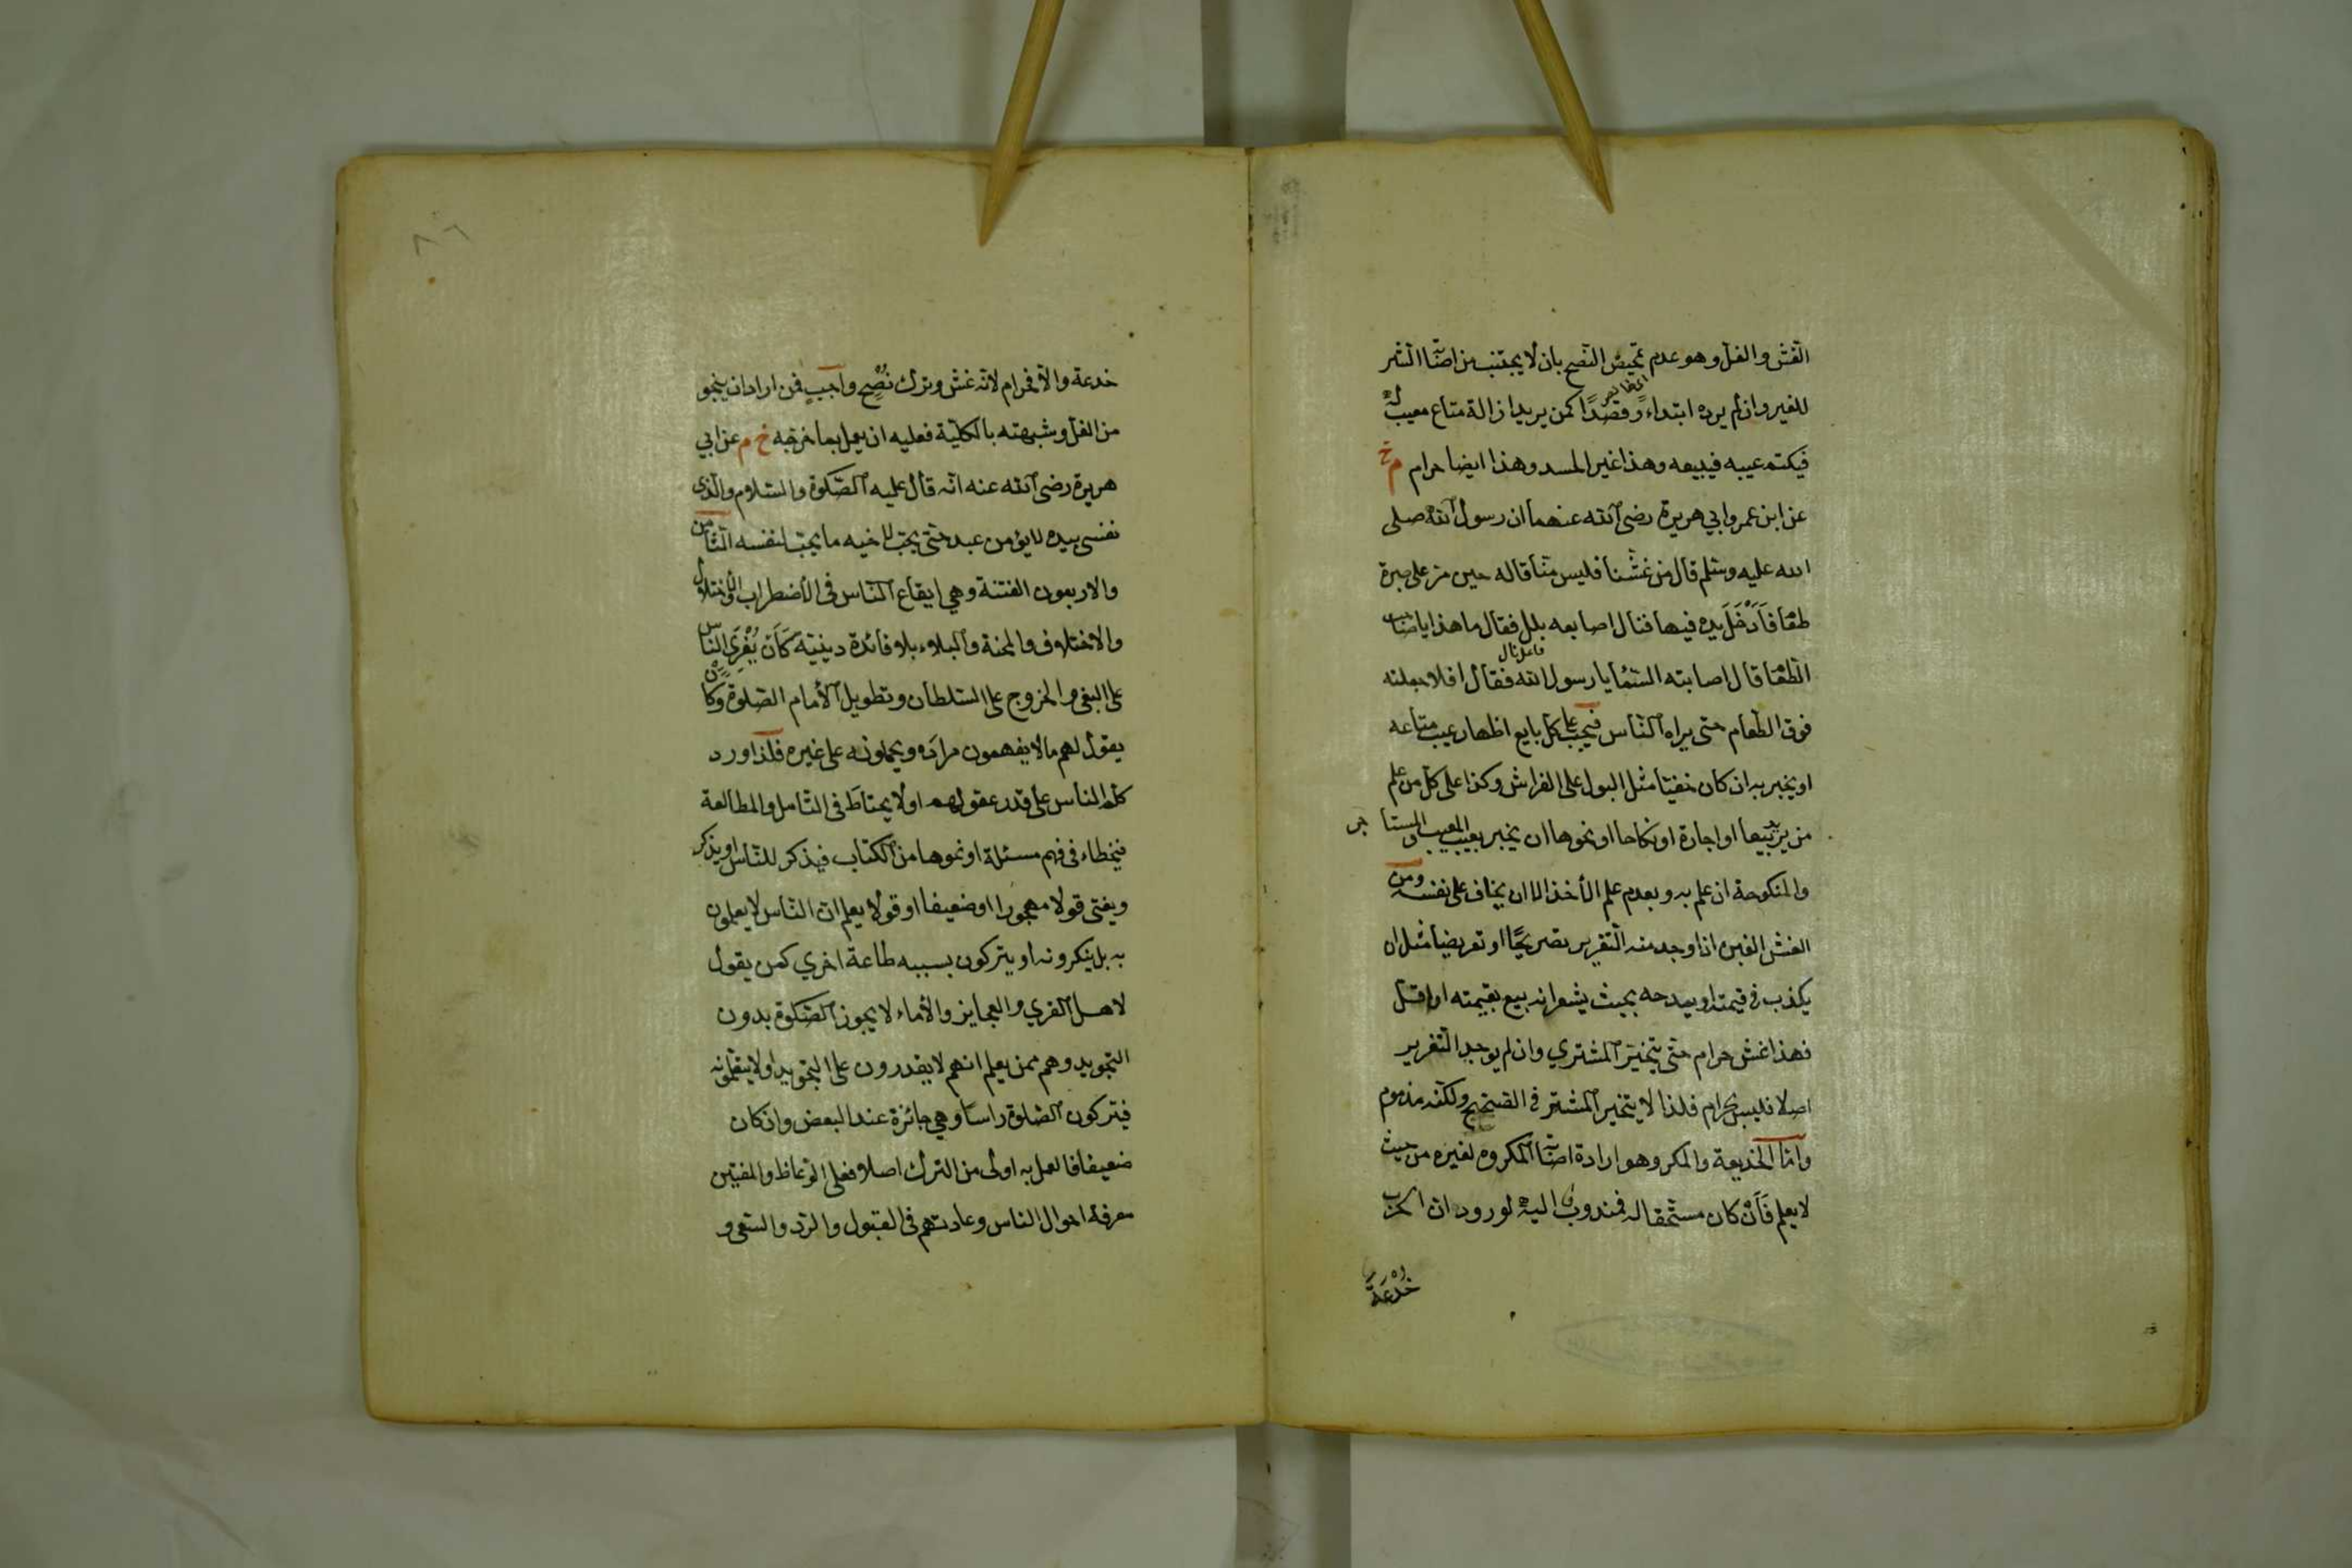 الغش والغل وهو عدم تمحيض النصح بان لا يجتنب من اصابة الشر
للغير وان لم يرده ابتداء وقصدا كمن يريد ازالة متاع معيب له
فيكتم عيبه فيبيعه وهذا غير الحسد وهذا ايضا حرام م خ
عن ابن عمر وابي هريرة رضى الله عنهما ان رسول الله صلى
الله عليه وسلم قال من غشنا فليس منا قاله حين مر على صبرة
طعام فَاَدْخَلَ يده فيها فنال اصابعه بلل فقال ما هذا يا صاحب
فاعل نال
الطعام قال اصابته السماء يا رسول الله فقال افلا جعلته
فوق الطعام حتى يراه الناس فيجب على كل بايع اظهار عيب متاعه
او يخبر به ان كان خفيا مثل البول على الفراش وكذا على كل من علم
من يريد بيعا او اجارة او نكاحا او نحوها ان يخبر بعيب المعيب والمستاجر
والمنكوحة ان علم به وبعدم علم الأخذ الا ان يخاف على نفسه ومن
الغش الغبن اذا وجد منه التغرير تصريحًا او تعريضا مثل ان
يكذب في قيمته او يمدحه بحيث يشعر انه بيع بقيمته او اقل
فهذا غش حرام حتى يتخير المشتري وان لم يوجد التغرير
اصلا فليس بحرام فلذا لا يتخير المشتر في الصحيح ولكنه مذموم
واما الخديعة والمكر وهو ارادة اصابة المكروه لغيره من حيث
لا يعلم فَاَنْ كان مستحقا له فمندوب اليه لورود ان الحرب
خُدْعَةٌ
٨٦
خدعة والا فحرام لانه غش وترك نُصْحٍ واجبٍ فمن اراد ان ينجو
من الغل وشبهته بالكلية فعليه ان يعمل بما خرجه خ م عن ابي
هريرة رضى الله عنه انه قال عليه الصلوة والسلام والذى
نفسى بيده لا يؤمن عبد حتى يحب لاخيه ما يحب لنفسه الثامن
والاربعون الفتنة وهي ايقاع الناس في الأضطراب والأختلال
والاختلاف والمحنة والبلاء بلا فائدة دينية كَاَنْ يُغْرِىَ الناس
على البغى والخروج على السلطان وتطويل الأمام الصلوة وكأن
يقول لهم ما لا يفهمون مراده ويحملونه على غيره فلذا ورد
كلم الناس على قدر عقولهم او لا يحتاط في التامل والمطالعة
فيخطاء في فهم مسئلة او نحوها من الكتاب فيذكر للناس او يذكر
ويفتى قولا مهجورا او ضعيفا او قولا يعلم ان الناس لا يعملون
به بل ينكرونه او يتركون بسببه طاعة اخري كمن يقول
لاهل القري والعجايز والأماء لا يجوز الصلوة بدون
التجويد وهم ممن يعلم انهم لا يقدرون على التجويد او لا يتعلمونه
فيتركون الصلوة راسا وهي جائزة عند البعض وان كان
ضعيفا فالعمل به اولى من الترك اصلا فعلى الوعاظ والمفتين
معرفة احوال الناس وعادتهم في القبول والرد والسعى و